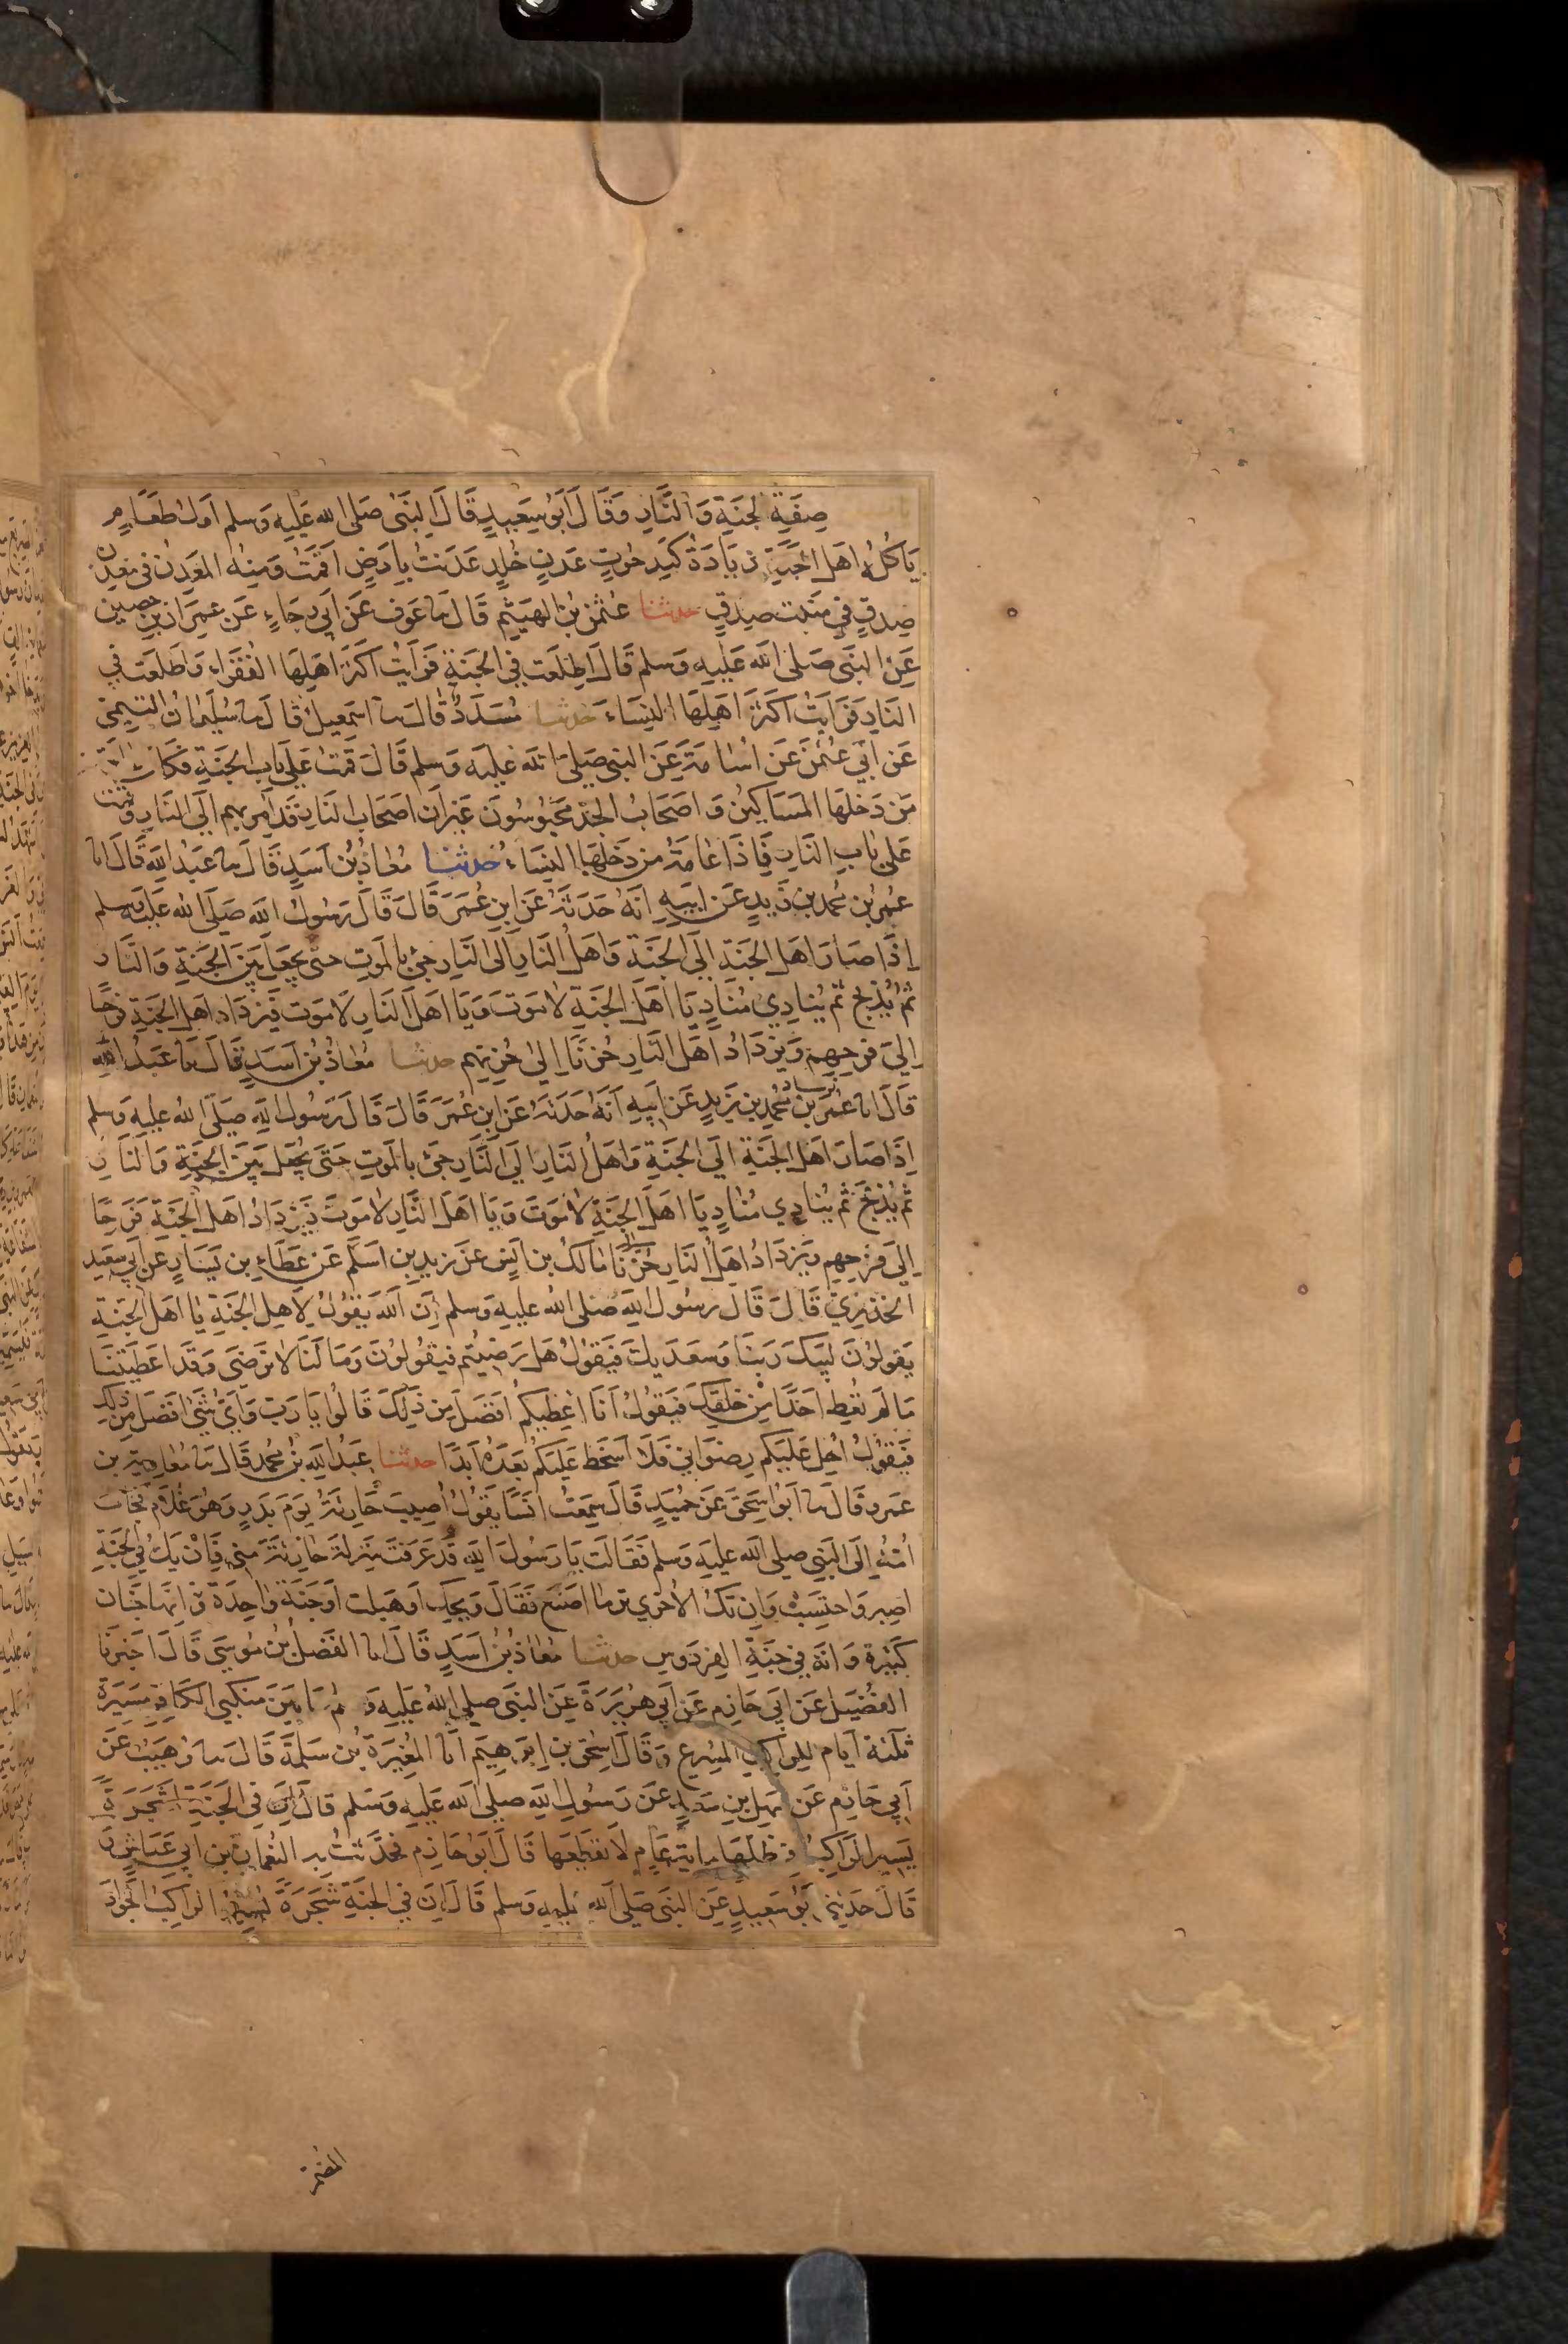 صِفَةِ الجَنَةِ وَالنَّارِ وَقَالَ أَبُو سَعِيدٍ قَالَ النَبِيُّ صَلى الله عَلَيهِ وَسلم اَول طَعَامٍ
يَاكُلُهُ اَهل الجَنَةِ زيَادَةُ كَبِدِ حُوتٍ عَدنٍ خُلدٍ عَدَنتُ بِاَرضٍ اَقمتُ وَمِنه المَعدِنُ فى مَعدِن
صِدقٍ فِي مَنبَت صِدقٍ حدثنا عُثمٰن بنُ الهَيثمِ قَالَ نا عَوف عَن اَبِي رجَاءٍ عَن عِمرَان بن حصين
عَن النَبي صَلى الله عَلَيهِ وَسلم قَالَ اطلَعت فِي الجَنَةِ فَرَاَيتُ اَكثَرَ اَهلِهَا الفُقَراء وَاطلَعت فِي
النَارِ فَرَاَيت اَكثَرَ اَهلِهَا النِسَاءَ حدثنا مُسَدَدٌ قَالَ نا اسمٰعِيلُ قَالَ نا سُلَيمَانُ التَيمي
عَن اَبِي عُثمٰنَ عَن اُسَامَةَ عَن النبي صَلى الله عَليه وَسلم قَالَ قمت عَلى بَاب الجَنَةِ فكَانَ عَامَة
مَن دَخلهَا المَسَاكِينُ وَاصحَابُ الجَد مَحبُوسُونَ غَير اَن اصحَاب النَار قَد اُمر بهم الَى النَار وَقمت
عَلى بَاب النَار فَاذَا عَامَةُ مَن دَخلهَا النِسَاءُ حدثنا مُعَاذُ بنُ اَسَدٍ قَالَ نا عَبدُ الله قَالَ انا
عُمَرُ بن مُحمد بن زَيدٍ عَن اَبِيهِ اَنَهُ حَدثَهُ عَن ابنِ عُمَرَ قَالَ قَالَ رَسُولُ الله صَلى الله عَليه وسلم
اِذَا صَارَ اَهل الجَنَة الَى الجَنَةِ وَاَهلُ النَارِ الَى النَارِ جئَ بِالمَوتِ حتى يجعَل بَينَ الجَنَةِ وَالنَار
ثم يُذبَح ثم يُنَادِي مُنَادٍ يَا اَهل الجَنَةِ لَا مَوتَ وَيَا اَهل النَار لَا مَوت فَيَزدَاد اَهل الجَنَةِ فرحًا
اِلى فَرحِهِم وَيَزدَادُ اَهل النَار حُزنًا اِلىٰ حُزنِهِم حدثنا مُعَاذُ بنُ اَسَدٍ قَالَ نا عَبدُ الله
قَالَ انا عُمَرُ بن مُحمد بن زَيدٍ عَن اَبِيهِ اَنَهُ حَدثَهُ عَن ابنِ عُمَرَ قَالَ قَالَ رَسُول الله صَلى الله عليهِ وَسلم
اِذَا صَارَ اَهل الجَنَةِ الَى الجَنَةِ وَاَهلُ النَارِ الَى النَارِ جئَ بالمَوتِ حَتى يجعَل بَينَ الجَنَةِ وَالنَار
ثم يُذبَح ثم يُنَادِي مُنَادٍ يَا اَهل الجَنَةِ لَا مَوتَ وَيَا اَهل النَار لَا مَوتَ فَيَزدَادُ اَهل الجَنَةِ فَرحًا
اِلَى فَرحِهِم وَيَزدَادُ اَهلُ النَار حُزنًا مَالكُ بن اَنَس عَن زَيدِ بنِ اَسلَمَ عَن عَطَاءِ بن يَسَارٍ عَن اَبِي سَعِيد
الخدرِيّ قَالَ قَالَ رسُول الله صَلى الله عليهِ وَسلم اِن الله يَقُولُ لِاَهل الجَنَةِ يَا اَهل الجَنَةِ
يَقُولونَ لَبيكَ رَبنَا وَسَعدَيكَ فَيقولُ هَل رَضِيتُم فَيقُولونَ وَمَا لَنَا لا نَرضَى وَقَد اَعطَيتَنَا
مَا لَم تُعطِ اَحَدًا مِن خَلقِكَ فَيَقولُ اَنَا اعطِيكُم اَفضَلَ مِن ذَلكَ قَالُوا يَا رَبِ وَاَيُّ شَئٍ افضَل مِن ذلك
فَيَقُولُ اُحِل عَلَيكُم رِضوَانِي فَلَا اسخَط عَلَيكُم بَعدَهُ اَبَدًا حدثنا عَبدُ الله بنُ مُحمد قَالَ نا مُعَاوِيَة بن
عَمرو قَالَ نا اَبُو اِسحٰقَ عَن حُمَيدٍ قَالَ سَمِعتُ اَنَسًا يَقُولُ اُصِيبَ حَارِثَةُ يَومَ بَدرٍ وَهُوَ غُلَام فجَاءَت
اُمُهُ الَى النَبي صلى الله عليهِ وَسلم فقَالَت يَا رَسُولَ الله قَد عَرَفتَ مَنزِلَةَ حَارِثَةَ مني فَاِن يَكُ فِي الجَنَةِ
اصبِر وَاحتَسِب وَاِن تَكُ الاُخرَي تَرى مَا اصنَع فَقَالَ وَيحكِ اَوَهَبِلتِ اَوَجَنَة وَاحِدَة هِيَ اِنَهَا جنَان
كَثِيرَة وَانَهُ فِي جَنَةِ الفِردَوس حدثنا مُعَاذُ بنُ اَسَدٍ قَالَ انا الفَضلُ بنُ مُوسَى قَالَ اَخبَرنَا
الفُضَيلُ عَن اَبِي حَازِم عَن اَبِي هُرَيرَةَ عَن النبَي صلى الله عَليهِ وَسلم مَا بَينَ مَنكبَي الكَافِرِ مَسِيرَة
ثلٰثة اَيَام لِلراكب المُسرِع وَقَالَ اسحٰق بن اِبرٰهِيم انَا المُغِيرَةُ بن سَلمَةَ قَالَ نا وُهَيبٌ عَن
اَبِي حَازِم عَن سَهل بنِ سَعدٍ عَن رَسُولِ الله صلى الله عَليهِ وَسَلم قَالَ اِن فِي الجَنَةِ لشَجَرَةً
يَسِيرُ الرَاكِبُ فِي ظلِهَا مِايَة عَامٍ لَا يَقطَعُهَا قَالَ اَبُو حَازِم فحدَثتُ بِه النُعمَانَ بنَ اَبِي عَيَاشٍ
قَالَ حَدثَني اَبُو سَعِيدٍ عَن النبَي صَلى الله عَليهِ وَسلم قَالَ اِنَ فِي الجَنَةِ شَجَرَةً يَسِيرُ الرَاكِبُ الجَوَادَ
المضمر